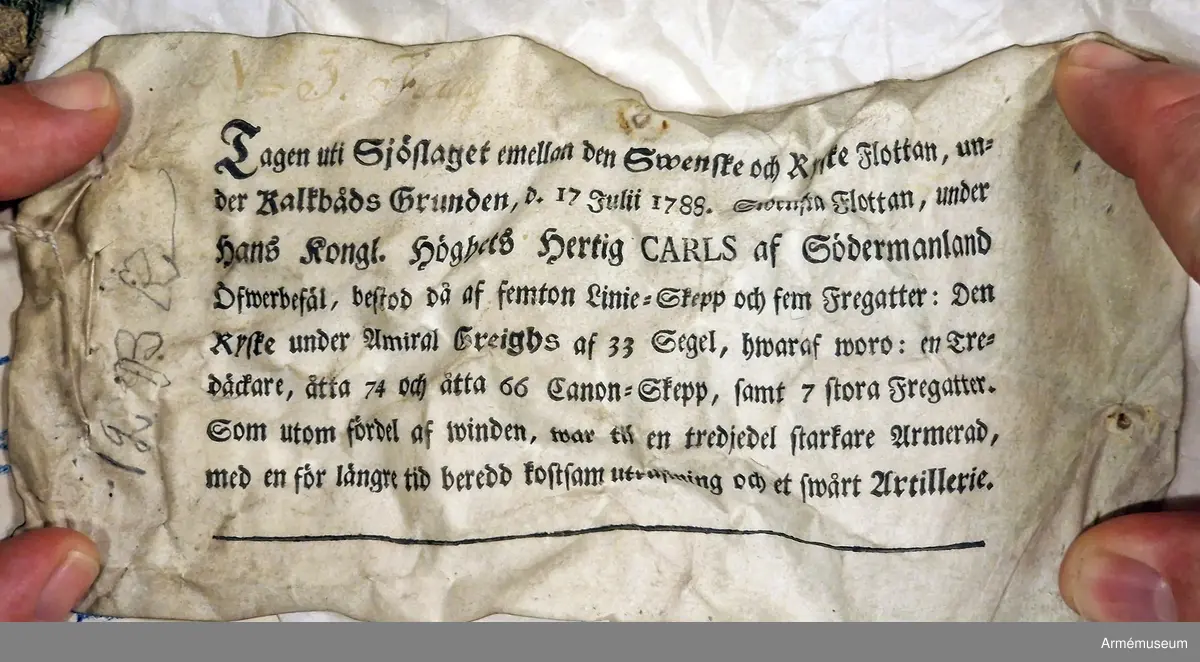 N 3. Flagg
Tagen uti Sjöslaget emellan den Swenske och Ryske Flottan, un-
der Kalkbåds Grunden, d. 17 Julii 1788. Swenska Flottan, under
Hans Kongl. Höghets Hertig CARLS af Södermanland
Öfwerbefäl, bestod då af femton Linie-Skepp och fem Fregatter: Den
Ryske under Amiral Greighs af 33 Segel, hwaraf woro: en Tre-
däckare, åtta 74 och åtta 66 Canon-Skepp, samt 7 stora Fregatter.
Som utom fördel af winden, war til en tredjedel starkare Armerad,
med en för längre tid beredd kostsam utrustning och et swårt Artillerie.
Armémuseum